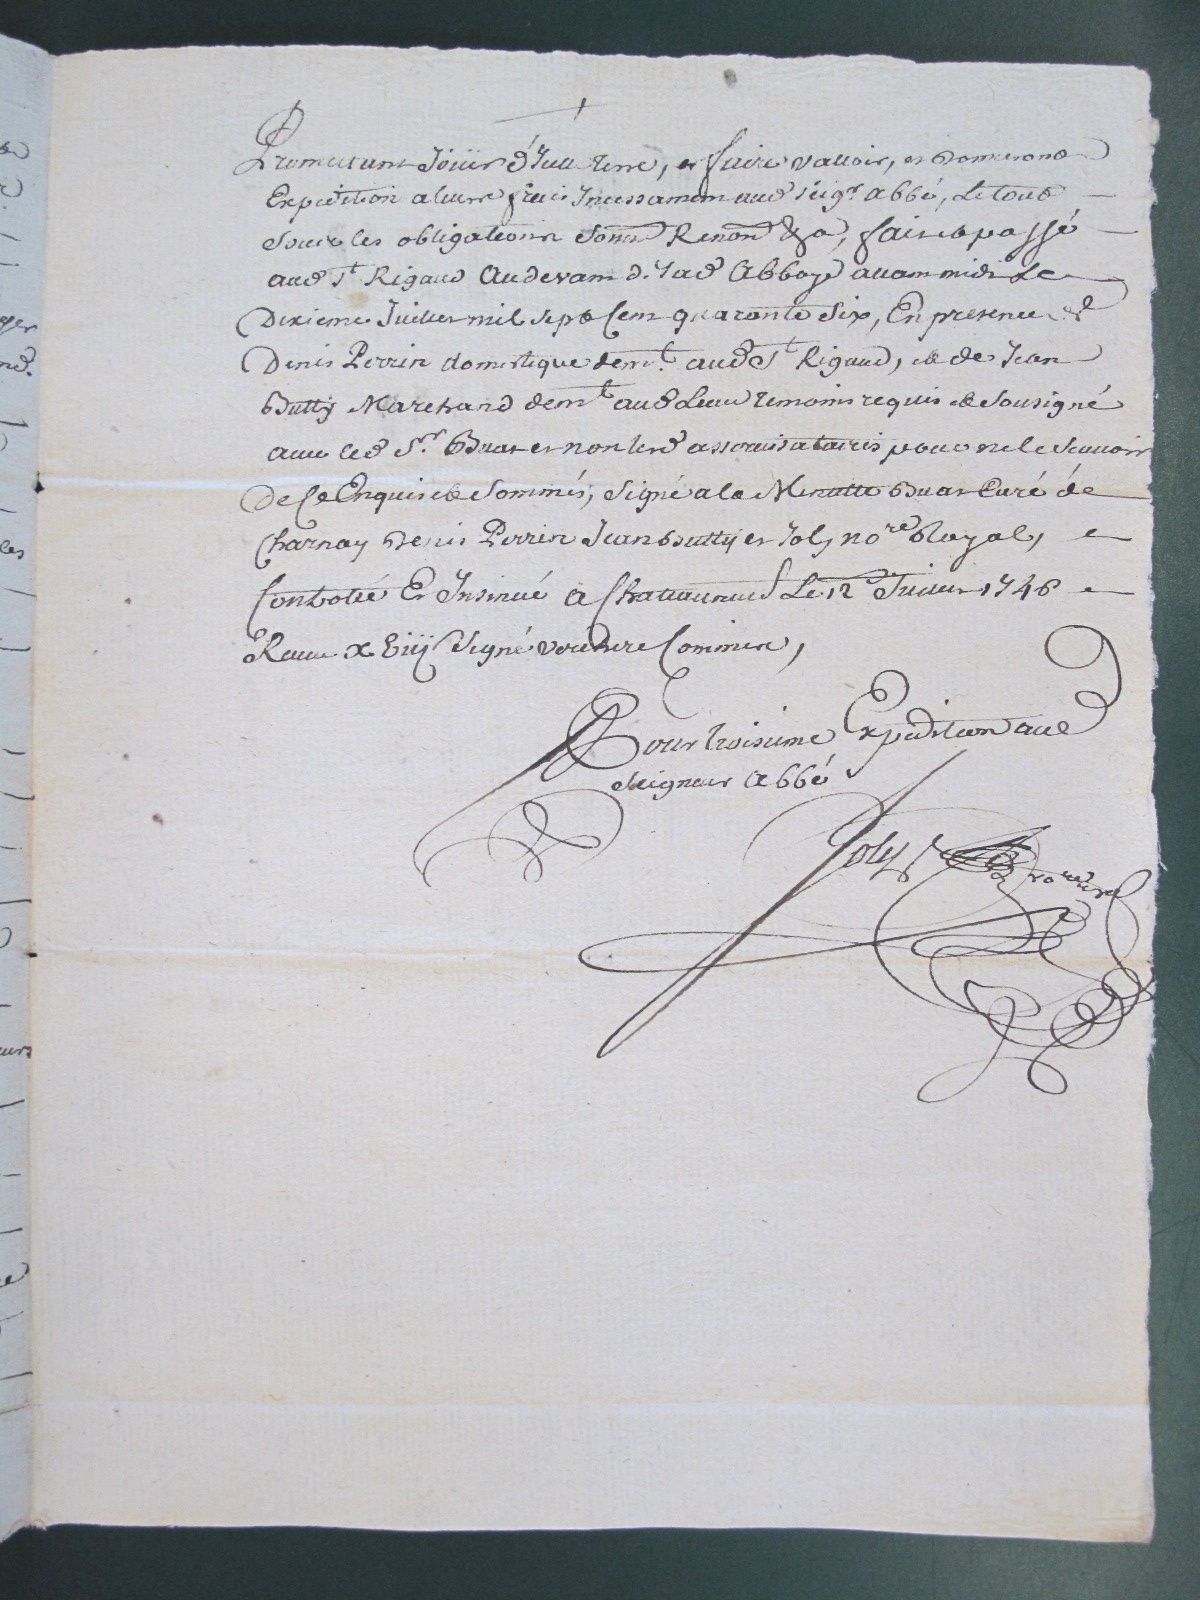 Promettant Joüir d'Jcelle terre, et faire valloir, et donneront
Expedition a leurs frais Incessament aud. seigr. abbé, Le tout
Sous les obligations Soms. Renon. &a, fait et passé
aud St. Rigaud Audevant d. Lad Abbaye avant midi Le
Dixieme Juillet mil sept Cent quarante Six, En presence de
Denis Perrin domestique demt. aud St. Rigaud, et de Jean
Butty Marchand demt. aud Lieu temoins requis et Sousigné
avec led Sr. Buat et non lesd pour ne le Scavoir
De Ce Enquis et Sommés, Signé a la Minutte Buat Curé de
Charnay Denis Perrin Jean Butty et Joly nore. Royal,
Controllé Et Insinué a Chateauneuf Le 12e Juillet 1746
Receu Signé Commis,
Pour troisieme Expedition aud
Seigneur abbé
Joly nore.